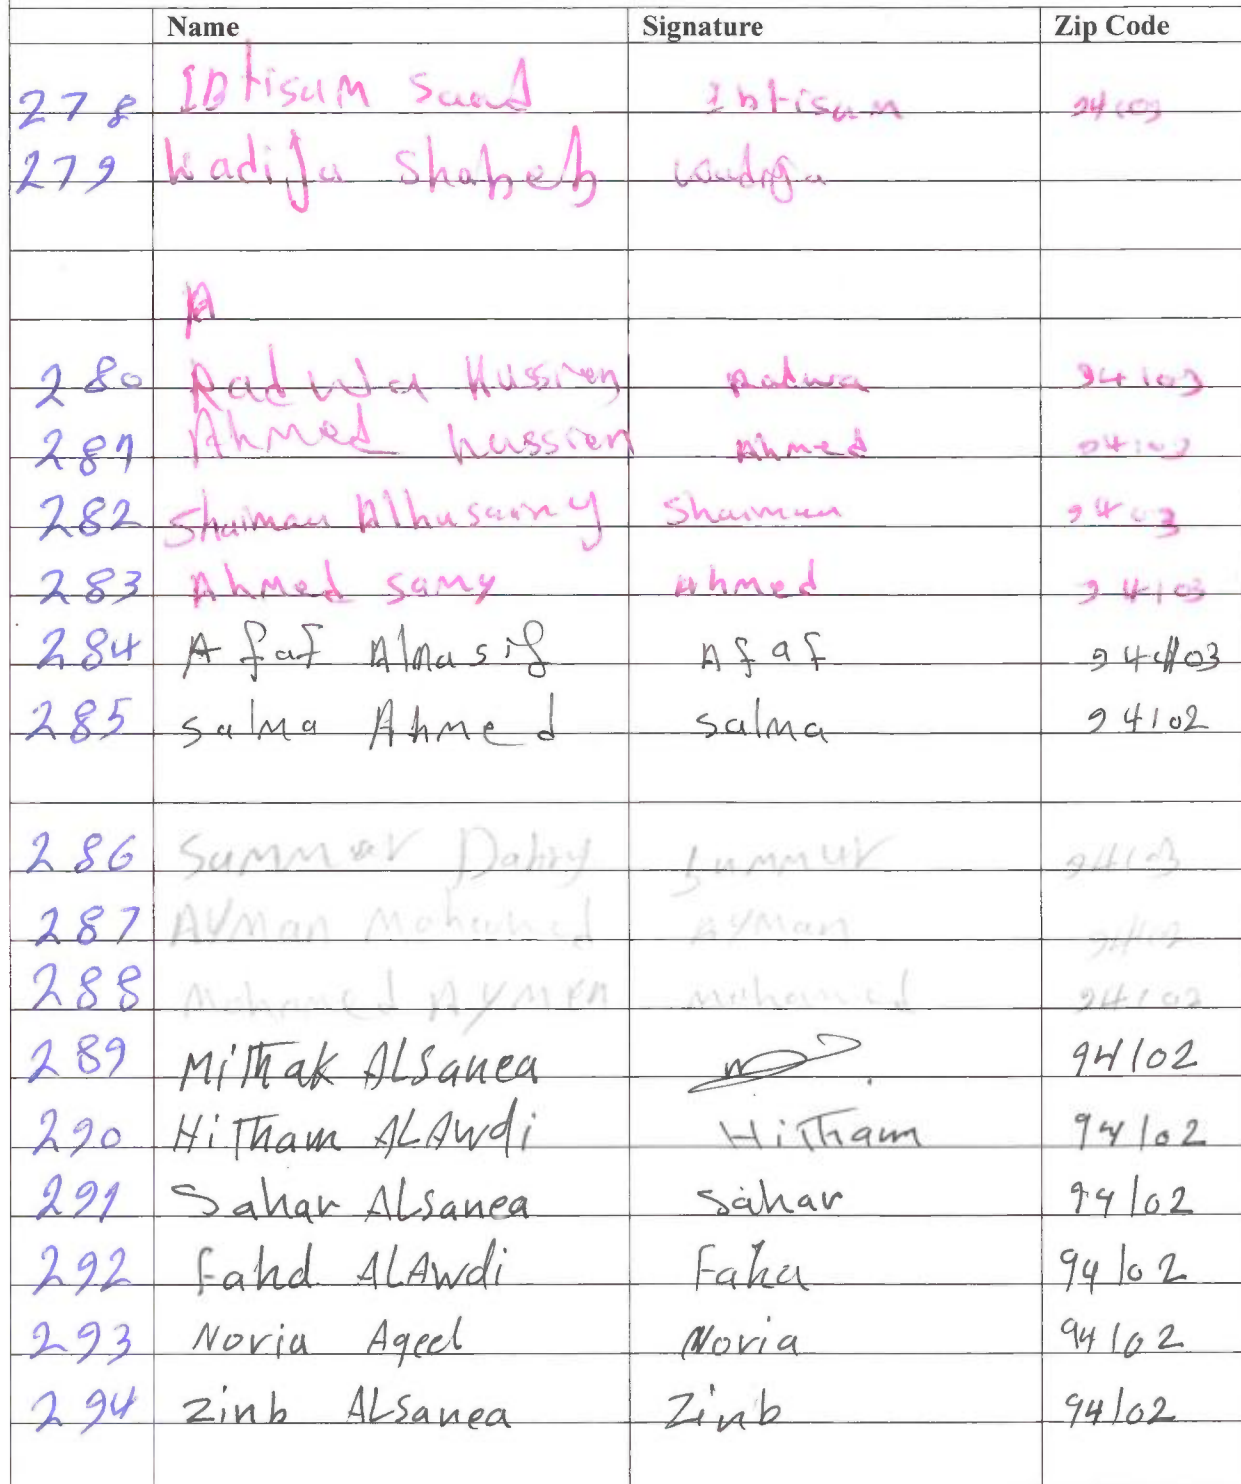 Name Signature Zip Code
278 IBtisam Saad Ibtisam 94103
279 Kadija Shabeh
A
280 Radwa Hussien Radwa 94103
281 Ahmed hussien Ahmed
282 Shaimaa Alhusainy Shaimaa 94103
283 Ahmed samy Ahmed 94103
284 Afaf Almasif Afaf 94103
285 salma Ahmed salma 94102
286 Summer Dahry Summur 94103
287 AYMan Mohamed AYMan 94102
288 Mohamed AYMEN mohamed 94102
289 MiThak ALSanea 94102
290 HiTham ALAwdi HiTham 94102
291 Sahar ALSanea Sahar 94102
292 Fahd ALAwdi 94102
293 Noria Aqeel Noria 94102
294 Zinb ALSanea Zinb 94102